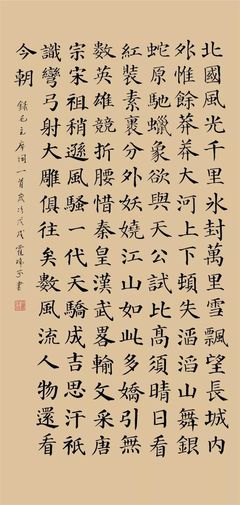 北國風光千里氷封萬里雪飄望長城内
外惟餘莽莽大河上下頓失滔滔山舞銀
蛇原馳蠟象欲與天公試比高須晴日看
紅裝素裹分外妖嬈江山如此多嬌引無
數英雄競折腰惜秦皇漢武畧輸文采唐
宗宋祖稍遜風騷一代天驕成吉思汗祇
識彎弓射大雕俱往矣數風流人物還看
今朝 錄毛主席词一首歲次戊戌 霍書